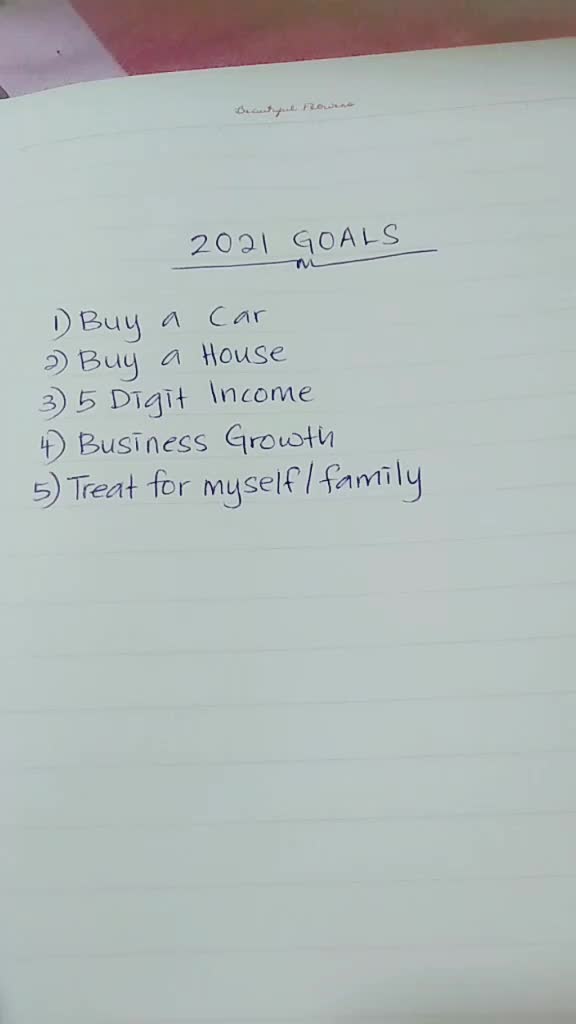 Beautiful Flowers
2021 GOALS
1) Buy a Car
2) Buy a House
3) 5 Digit Income
4) Business Growth
5) Treat for myself/family